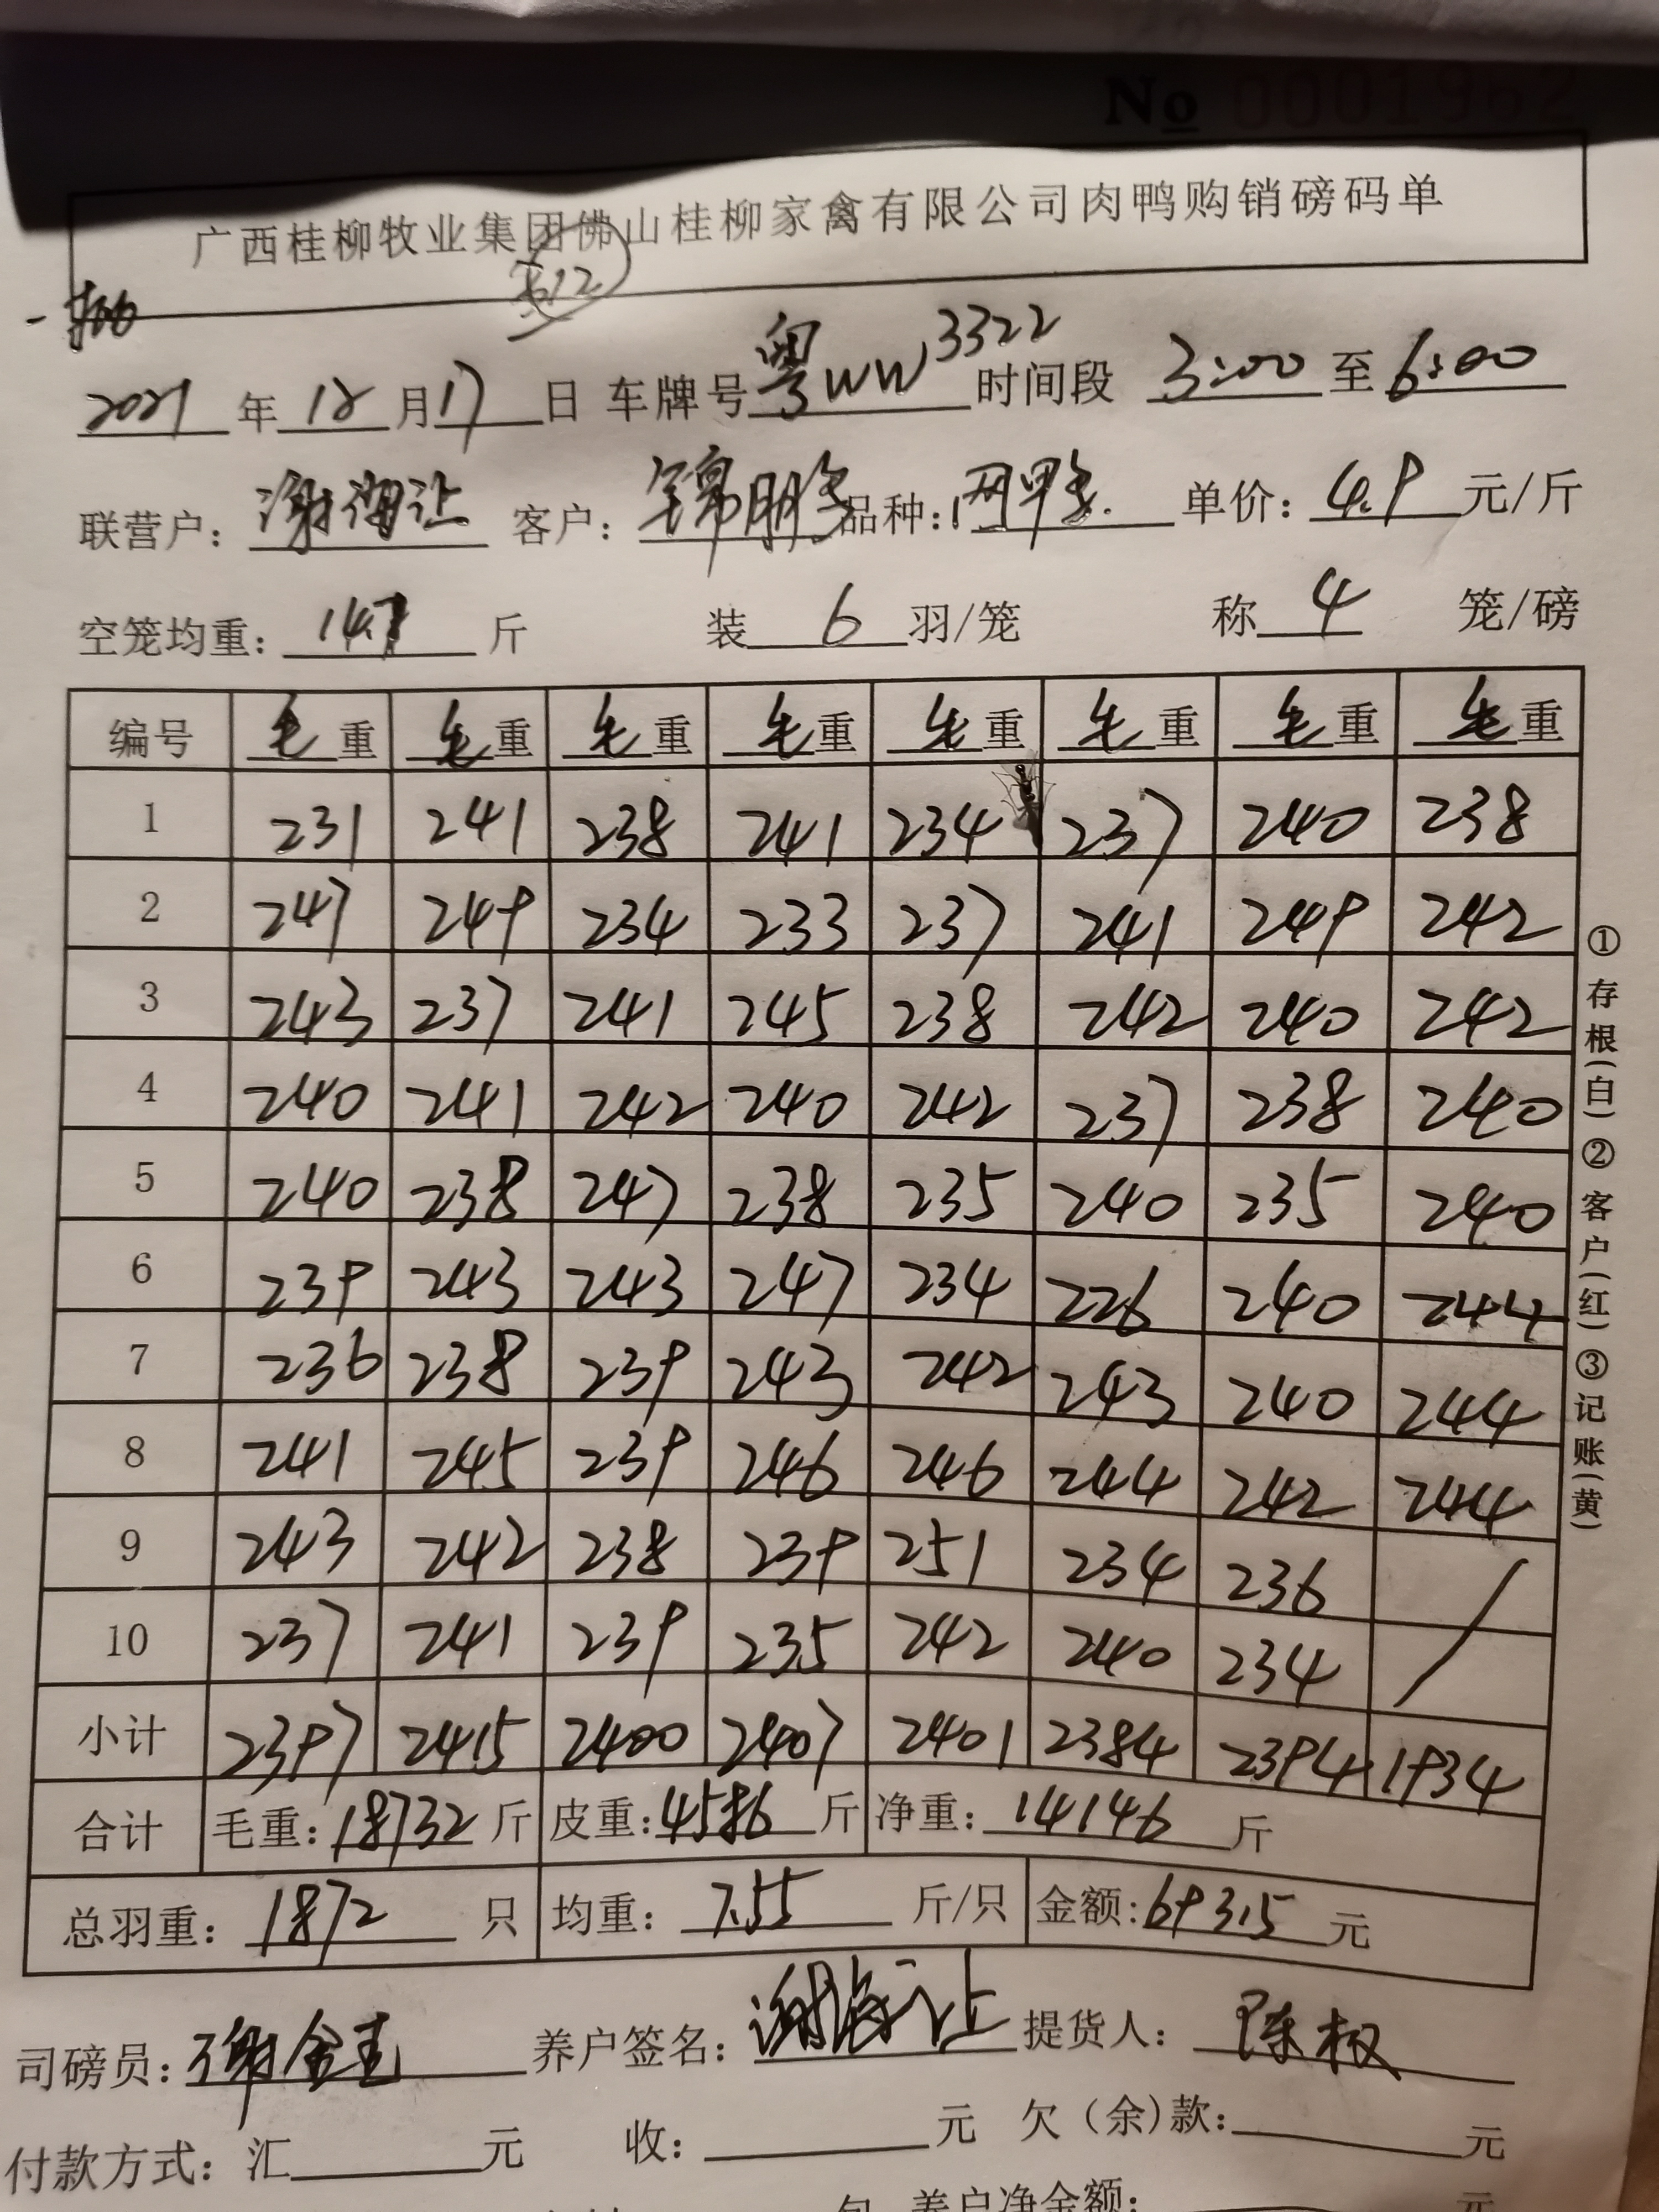 No 0001962
广西桂柳牧业集团佛山桂柳家禽有限公司肉鸭购销磅码单
2021年12月17日 车牌号粤WW3322 时间段 3:00至6:00
联营户: 谢海让 客户: 锦鹏 品种: 单价: 4.9元/斤
空笼均重: 14.7 斤 装6羽/笼 称4笼/磅
编号 毛重 毛重 毛重 毛重 毛重 毛重 毛重 毛重
1 231 241 238 241 234 237 240 238
2 247 249 234 233 237 241 249 242
3 243 237 241 245 238 242 240 242
4 240 241 242 240 242 237 238 240
5 240 238 247 238 235 240 235 240
6 239 243 243 247 234 226 240 244
7 236 238 239 243 242 243 240 244
8 241 245 239 246 246 244 242 244
9 243 242 238 239 251 234 236 /
10 237 241 239 235 242 240 234
小计 2397 2415 2400 2407 2401 2384 2394 1934
合计 毛重: 18732斤 皮重: 4586斤 净重: 14146斤
总羽重: 1872只 均重: 7.55斤/只 金额: 69315元
①存根(白)②客户(红)③记账(黄)
司磅员: 养户签名: 谢海让 提货人: 陈权
付款方式: 汇 元 收: 元 欠(余)款: 元
养户净金额: 元